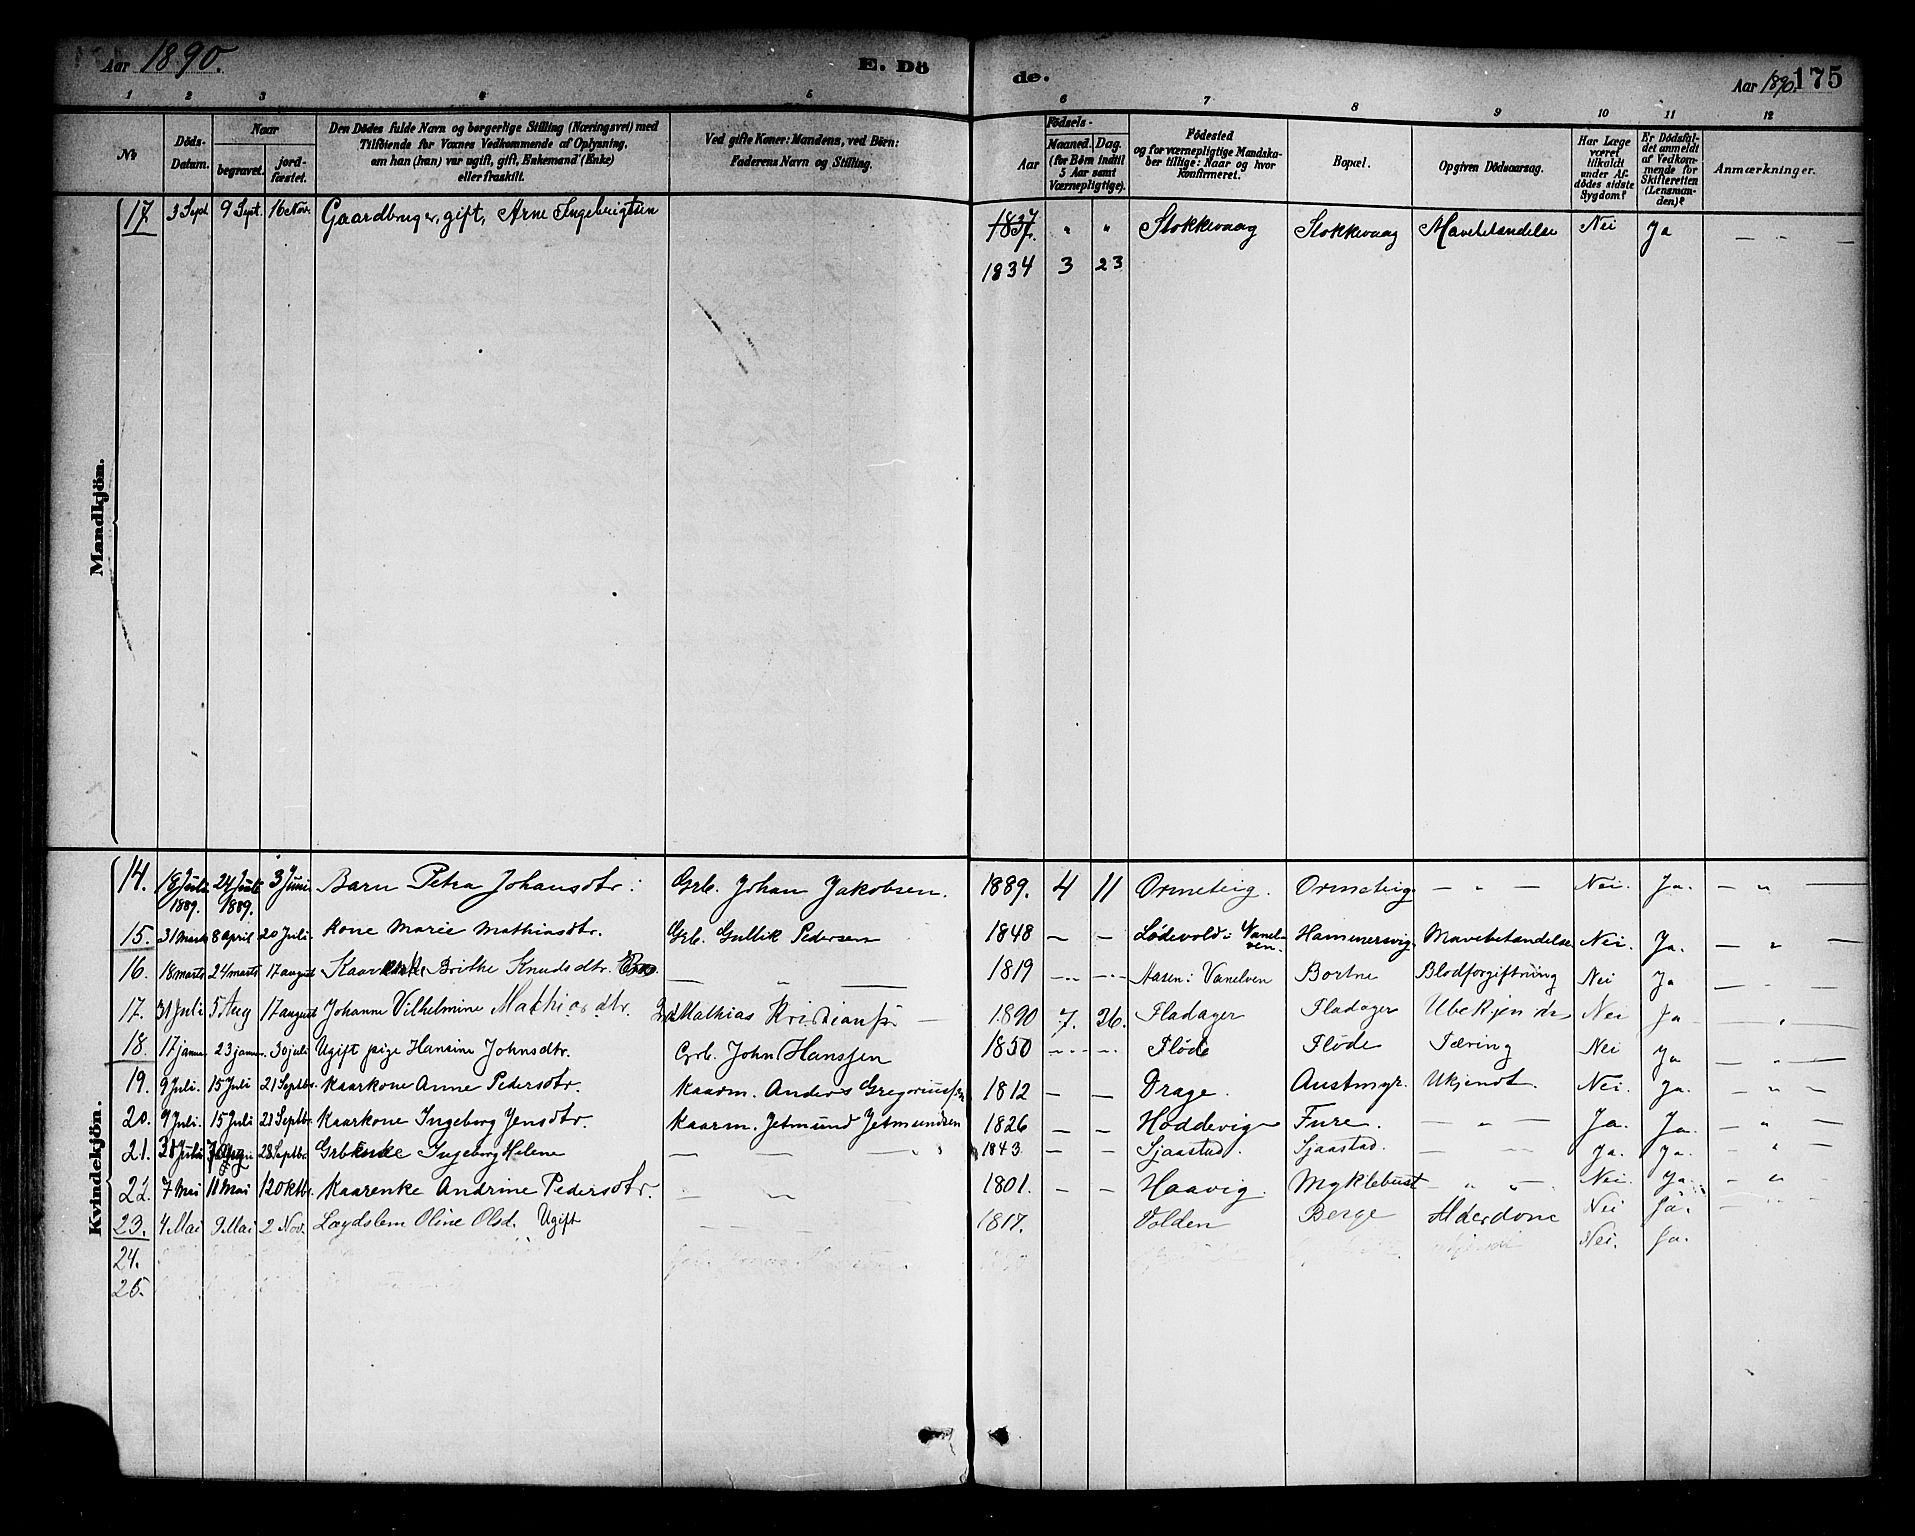 Aar 1890.
E. Dö
de.
Aar 1890. 175
1 2 3 4 5 6 7 8 9 10 11 12
No
Döds-Datum.
Naar
begravet.
jord-fæstet.
Den Dödes fulde Navn og borgerlige Stilling (Næringsvei) med
Tilföiende for Voxnes Vedkommende af Oplysning,
om han (hun) var ugift, gift, Enkemand (Enke)
eller fraskilt.
Ved gifte Koner: Mandens, ved Börn:
Faderens Navn og Stilling.
Födsels-
Aar
Maaned. Dag.
(for Börn indtil
5 Aar samt
Værnepligtige).
Födested
og for værnepligtige Mandska-
ber tillige: Naar og hvor
konfirmeret.
Bopæl.
Opgiven Dödsaarsag.
Har Læge
været
tilkaldt
under Af-
dödes sidste
Sygdom?
Er Dödsfal-
det anmeldt
af Vedkom-
mende for
Skifteretten
(Lensman-
den)?
Anmærkninger.
Mandkjön.
17 3 Sept 9 Sept. 16 Nov. Gaardbruger, gift, Arne Ingebrigtsen 1837. " " Stokkevaag Stokkevaag Mavebetændelse Nei Ja — " —
1834 3 23
Kvindekjön.
14. 18 Juli 1889. 24 Juli 1889. 3 Juni Barn Petra Johansdtr. Grb. Johan Jakobsen. 1889. 4 11 Ormeteig. Ormeteig — " — Nei. Ja. — " —
15. 31 Marts 8 April 20 Juli. Kone Marie Mathiasdtr. Grb. Gullik Pedersen 1848 — — Lødevold i Vanelven. Hammersvig Mavebetændelse Nei. Ja. — " —
16. 18 marts 24 marts 17 august Kaarenke Brithe Knudsdtr. — " — 1819 — — Aasen i Vanelven Bortne Blodforgiftning Nei Ja — " —
17. 31 Juli 5 Aug 17 august Johanne Vilhelmine Mathiasdtr. Mathias Kristianss. — 1890 7. 26. Fladager Fladager Ubekjendt Nei Ja — " —
18. 17 januar 23 januar 30 juli Ugift pige Hansine Johnsdtr. Grb. John Hanssen 1850 — — Fløde Fløde Tæring Nei Ja — " —
19. 9 Juli. 15 Juli 21 Septbr. Kaarkone Anne Pedersdtr. Kaarm. Anders Gregoriussen 1812 — — Drage. Austmyr. Ukjendt. Nei. Ja. — " "
20. 9 Juli. 15 Juli 21 Septbr. Kaarkone Ingeborg Jensdtr. Kaarm. Jetmund Jetmundsen 1826 — — Hoddevig Fure. — " — Ja. Ja. — " —
21. 31 Juli 28 Septbr. Grbenke Ingeborg Helene — — — " 1843 — — Sjaastad. Sjaastad. Ja. Ja. — "
22. 7 Mai 11 Mai 12 Oktbr. Kaarenke Andrine Pedersdtr. — " — 1801. — — Haavig. Myklebust " " — Nei. Ja. — "
23. 4 Mai 9 Mai 2 Nov. Lægdslem Oline Olsd. Ugift — — 1817. Volden Berge Alderdom Nei Ja.
24. Nei. Ja.
25.